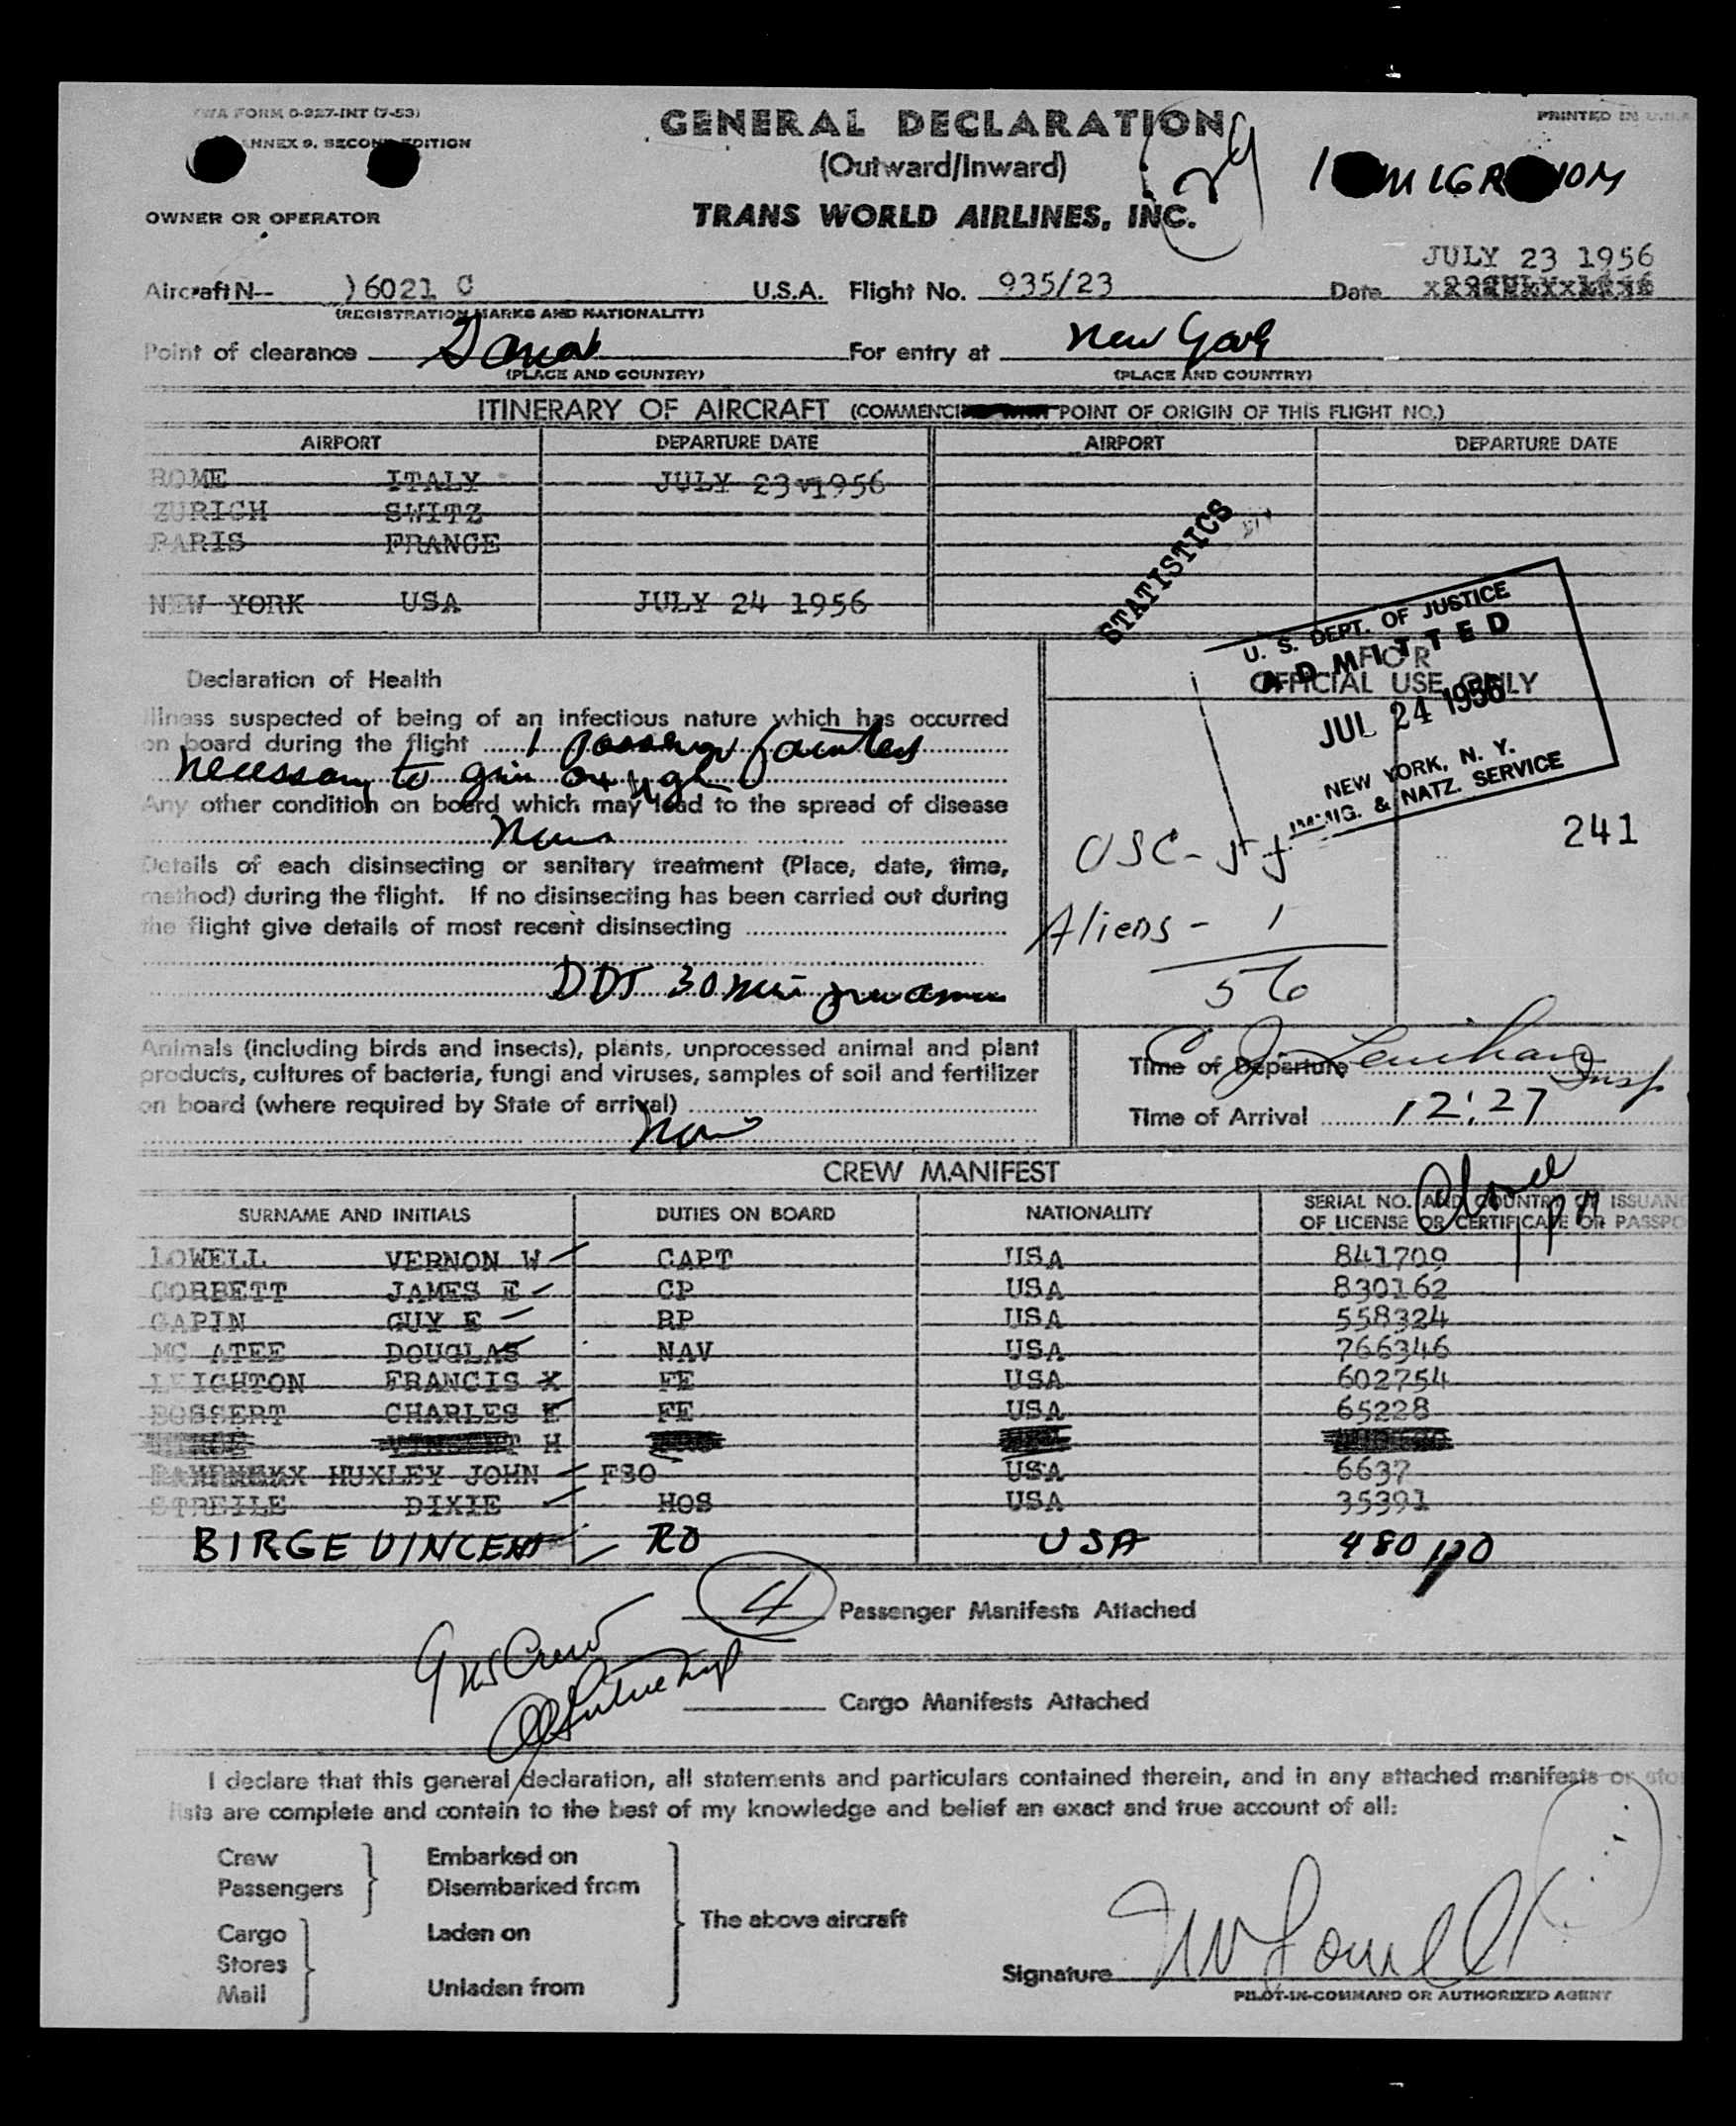 TWA FORM 0-927-INT (7-53)
PRINTED IN U.S.A.
GENERAL DECLARATION
ANNEX 9, SECOND EDITION
(Outward/Inward)
29
OWNER OR OPERATOR
TRANS WORLD AIRLINES, INC.
JULY 23 1956
Aircraft N-- 6021 C U.S.A. Flight No. 935/23 Date
(REGISTRATION MARKS AND NATIONALITY)
Point of clearance For entry at New York
(PLACE AND COUNTRY) (PLACE AND COUNTRY)
ITINERARY OF AIRCRAFT (COMMENCING POINT OF ORIGIN OF THIS FLIGHT NO.)
AIRPORT DEPARTURE DATE AIRPORT DEPARTURE DATE
ROME ITALY JULY 23 1956
ZURICH SWITZ
PARIS FRANCE
NEW YORK USA JULY 24 1956
STATISTICS
U. S. DEPT. OF JUSTICE
ADMITTED
JUL 24 1956
NEW YORK, N. Y.
IMMIG. & NATZ. SERVICE
Declaration of Health
FOR
OFFICIAL USE ONLY
Illness suspected of being of an infectious nature which has occurred
on board during the flight 1 passenger fainted
necessary to give oxygen
Any other condition on board which may lead to the spread of disease
None
241
USC - 55
Aliens - 1
56
Details of each disinsecting or sanitary treatment (Place, date, time,
method) during the flight. If no disinsecting has been carried out during
the flight give details of most recent disinsecting
DDT 30 min
Animals (including birds and insects), plants, unprocessed animal and plant
products, cultures of bacteria, fungi and viruses, samples of soil and fertilizer
on board (where required by State of arrival)
None
Time of Departure
Insp
Time of Arrival 12:27
CREW MANIFEST
SURNAME AND INITIALS DUTIES ON BOARD NATIONALITY SERIAL NO. AND COUNTRY OF ISSUANC
OF LICENSE OR CERTIFICATE OR PASSPO
LOWELL VERNON W CAPT USA 841709
CORBETT JAMES E CP USA 830162
GAPIN GUY E RP USA 558324
MC ATEE DOUGLAS NAV USA 766346
LEIGHTON FRANCIS X FE USA 602754
BOSSERT CHARLES E FE USA 65228
VINCENT H
HUXLEY JOHN FSO USA 6637
STREILE DIXIE HOS USA 35391
BIRGE VINCENT RO USA 480
4 Passenger Manifests Attached
9 US Crew
Cargo Manifests Attached
I declare that this general declaration, all statements and particulars contained therein, and in any attached manifests or sto
lists are complete and contain to the best of my knowledge and belief an exact and true account of all:
Crew Embarked on
Passengers Disembarked from
The above aircraft
Cargo Laden on
Stores
Mail Unladen from
Signature VW Lowell
PILOT-IN-COMMAND OR AUTHORIZED AGENT